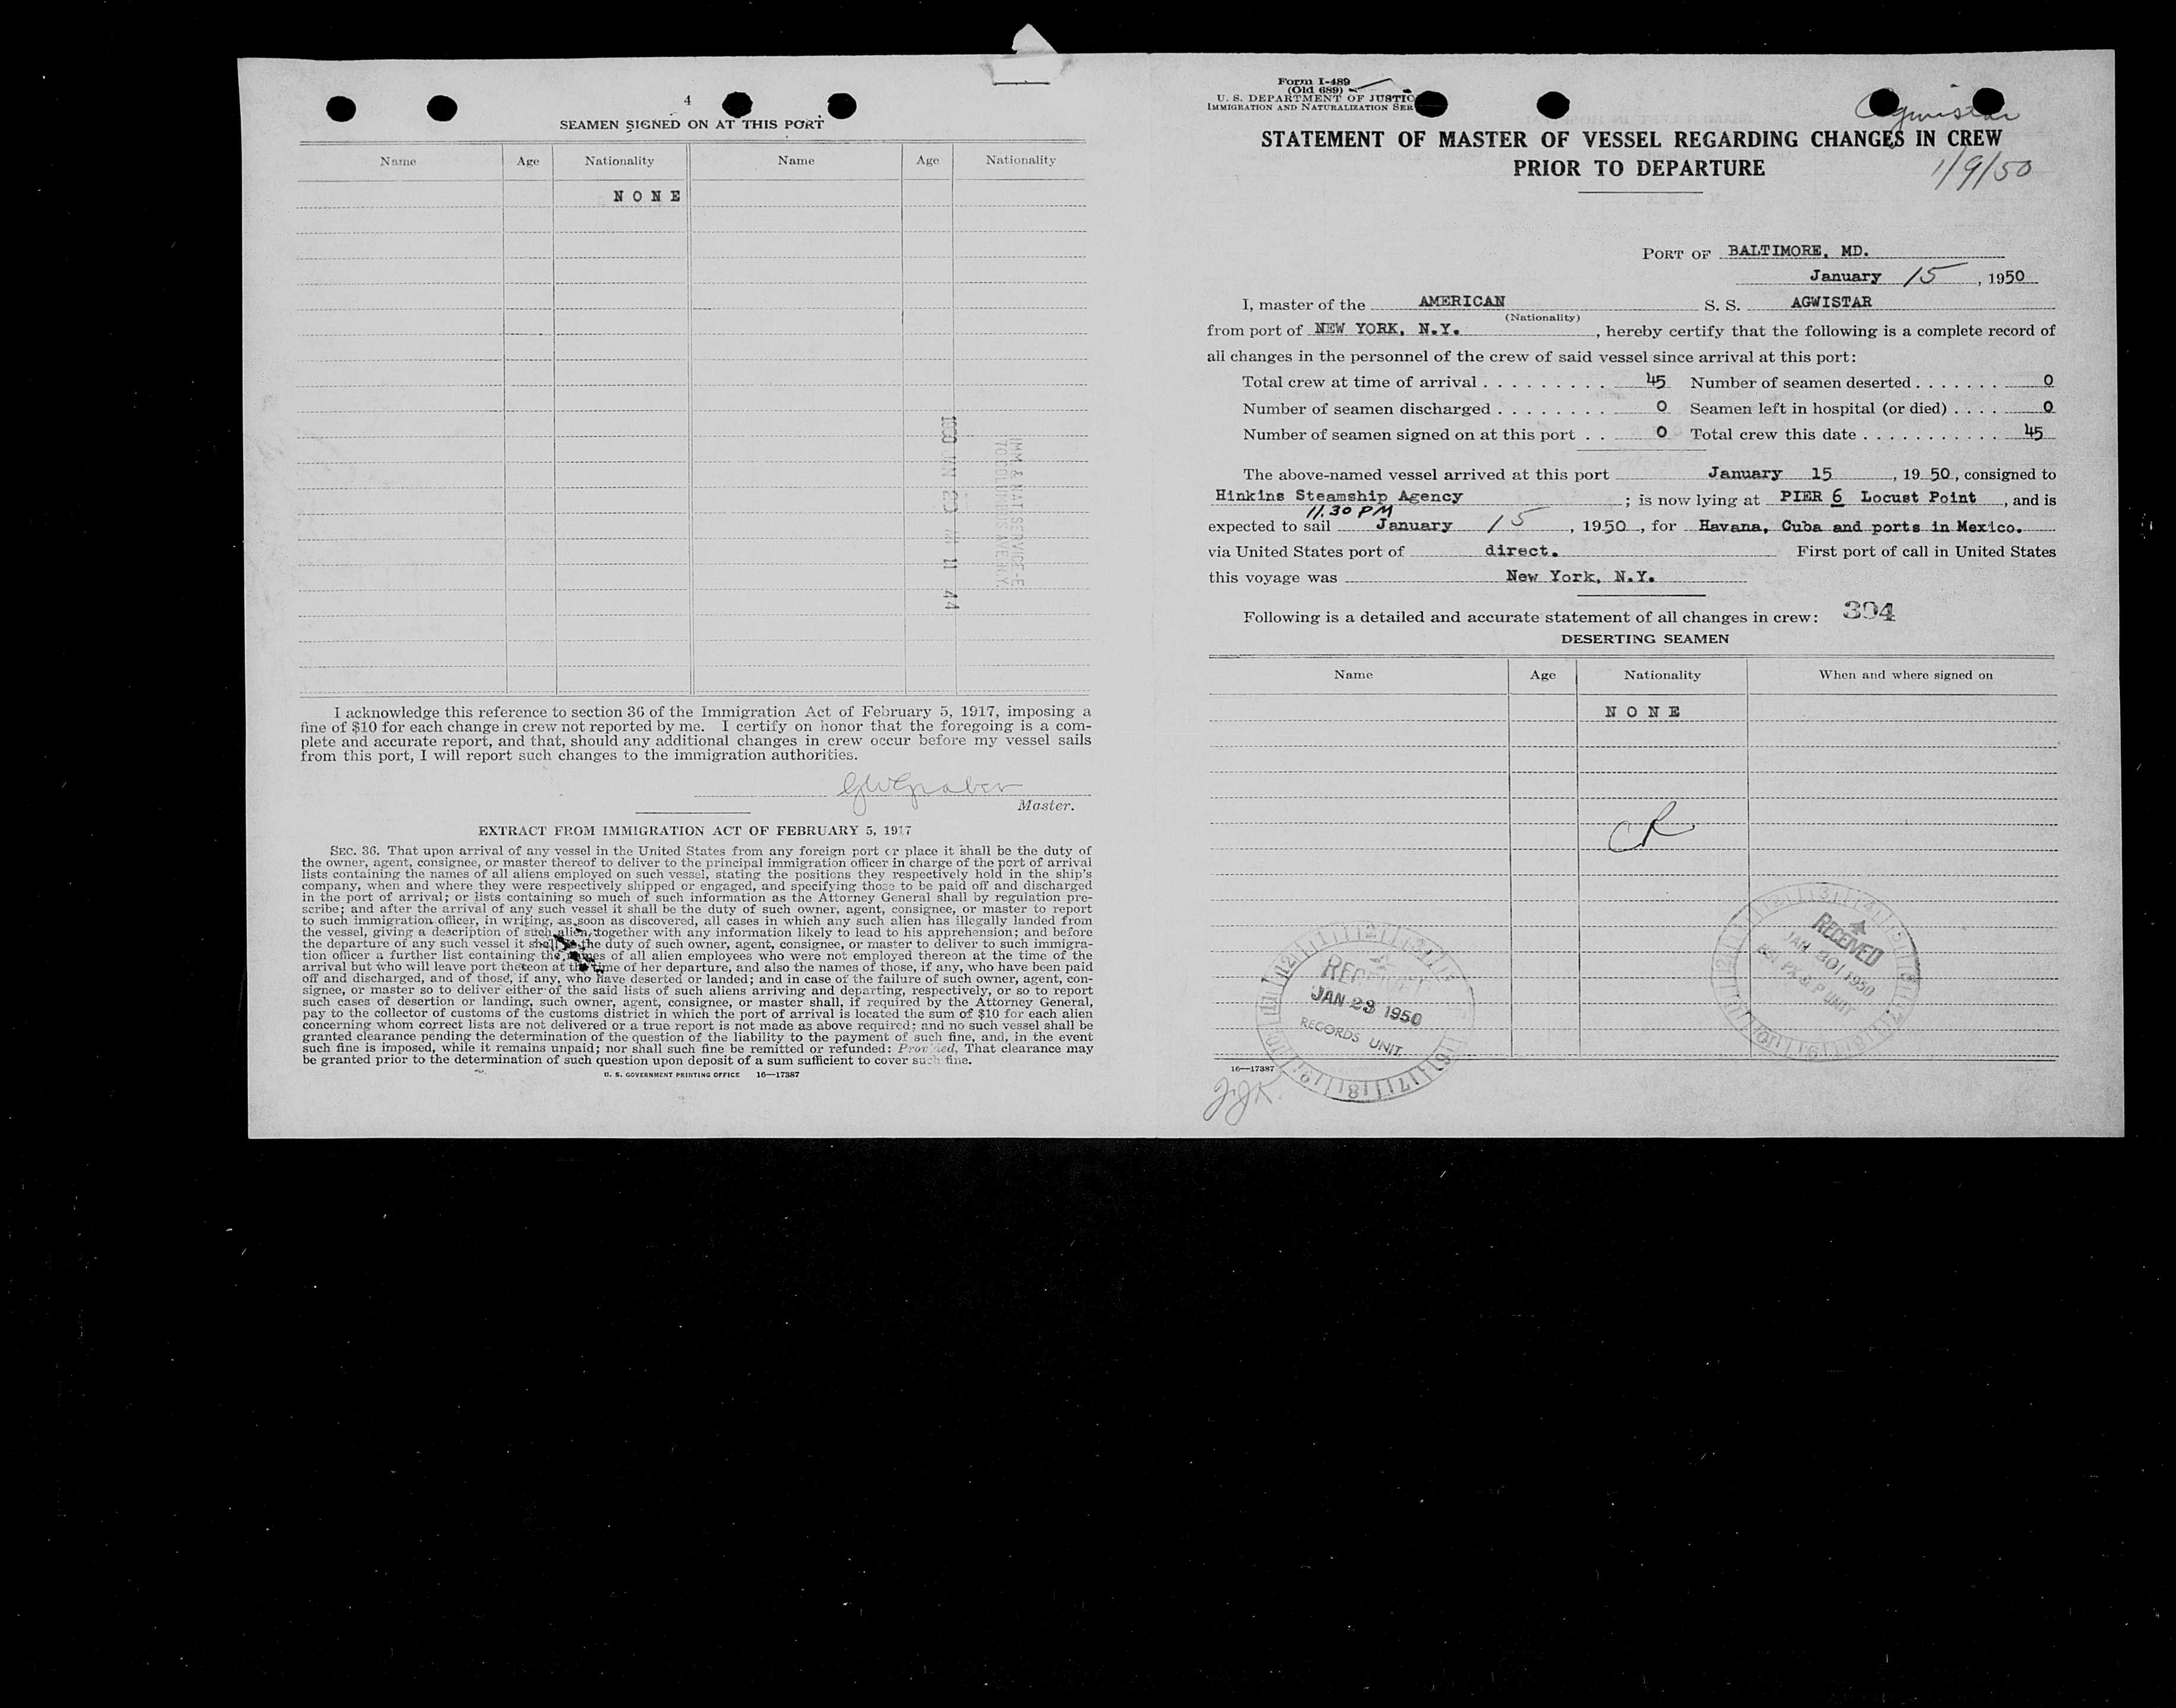 4
SEAMEN SIGNED ON AT THIS PORT
Name Age Nationality Name Age Nationality
NONE
1950 JAN 11 44
IMM & NAT SERVICE-E
70 COLUMBUS AVE N.Y.
I acknowledge this reference to section 36 of the Immigration Act of February 5, 1917, imposing a
fine of $10 for each change in crew not reported by me. I certify on honor that the foregoing is a com-
plete and accurate report, and that, should any additional changes in crew occur before my vessel sails
from this port, I will report such changes to the immigration authorities.
GWGraber
Master.
EXTRACT FROM IMMIGRATION ACT OF FEBRUARY 5, 1917
SEC. 36. That upon arrival of any vessel in the United States from any foreign port or place it shall be the duty of
the owner, agent, consignee, or master thereof to deliver to the principal immigration officer in charge of the port of arrival
lists containing the names of all aliens employed on such vessel, stating the positions they respectively hold in the ship's
company, when and where they were respectively shipped or engaged, and specifying those to be paid off and discharged
in the port of arrival; or lists containing so much of such information as the Attorney General shall by regulation pre-
scribe; and after the arrival of any such vessel it shall be the duty of such owner, agent, consignee, or master to report
to such immigration officer, in writing, as soon as discovered, all cases in which any such alien has illegally landed from
the vessel, giving a description of such alien, together with any information likely to lead to his apprehension; and before
the departure of any such vessel it shall be the duty of such owner, agent, consignee, or master to deliver to such immigra-
tion officer a further list containing the names of all alien employees who were not employed thereon at the time of the
arrival but who will leave port thereon at the time of her departure, and also the names of those, if any, who have been paid
off and discharged, and of those, if any, who have deserted or landed; and in case of the failure of such owner, agent, con-
signee, or master so to deliver either of the said lists of such aliens arriving and departing, respectively, or so to report
such cases of desertion or landing, such owner, agent, consignee, or master shall, if required by the Attorney General,
pay to the collector of customs of the customs district in which the port of arrival is located the sum of $10 for each alien
concerning whom correct lists are not delivered or a true report is not made as above required; and no such vessel shall be
granted clearance pending the determination of the question of the liability to the payment of such fine, and, in the event
such fine is imposed, while it remains unpaid; nor shall such fine be remitted or refunded: Provided, That clearance may
be granted prior to the determination of such question upon deposit of a sum sufficient to cover such fine.
U. S. GOVERNMENT PRINTING OFFICE 16—17387
Form I-489
(Old 689)
U. S. DEPARTMENT OF JUSTIC
IMMIGRATION AND NATURALIZATION SER
Agwistar
STATEMENT OF MASTER OF VESSEL REGARDING CHANGES IN CREW
PRIOR TO DEPARTURE
1/9/50
PORT OF BALTIMORE, MD.
January 15, 1950
I, master of the AMERICAN S. S. AGWISTAR
(Nationality)
from port of NEW YORK, N.Y., hereby certify that the following is a complete record of
all changes in the personnel of the crew of said vessel since arrival at this port:
Total crew at time of arrival . . . . . . . . . 45 Number of seamen deserted . . . . . . . 0
Number of seamen discharged . . . . . . . . 0 Seamen left in hospital (or died) . . . . 0
Number of seamen signed on at this port . . 0 Total crew this date . . . . . . . . . . . 45
The above-named vessel arrived at this port January 15, 1950, consigned to
Hinkins Steamship Agency; is now lying at PIER 6 Locust Point, and is
11.30 PM
expected to sail January 15, 1950, for Havana, Cuba and ports in Mexico.
via United States port of direct. First port of call in United States
this voyage was New York, N.Y.
Following is a detailed and accurate statement of all changes in crew: 394
DESERTING SEAMEN
Name Age Nationality When and where signed on
NONE
CR
RECEIVED
JAN 23 1950
RECORDS UNIT
RECEIVED
JAN 30 1950
16—17387
J.J.K.